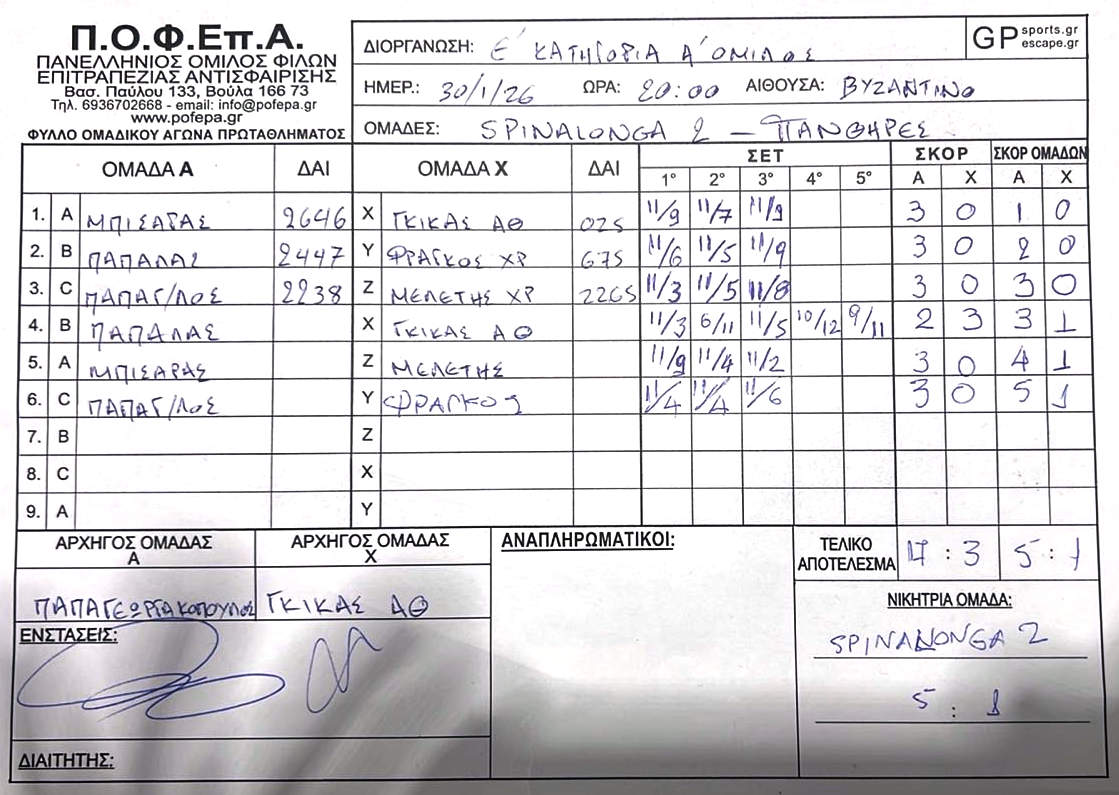 Π.Ο.Φ.Επ.Α.
ΠΑΝΕΛΛΗΝΙΟΣ ΟΜΙΛΟΣ ΦΙΛΩΝ
ΕΠΙΤΡΑΠΕΖΙΑΣ ΑΝΤΙΣΦΑΙΡΙΣΗΣ
Βασ. Παύλου 133, Βούλα 166 73
Τηλ. 6936702668 - email: info@pofepa.gr
www.pofepa.gr
ΦΥΛΛΟ ΟΜΑΔΙΚΟΥ ΑΓΩΝΑ ΠΡΩΤΑΘΛΗΜΑΤΟΣ
ΔΙΟΡΓΑΝΩΣΗ: Ε' ΚΑΤΗΓΟΡΙΑ Α' ΟΜΙΛΟΣ
GP sports.gr
escape.gr
ΗΜΕΡ.: 30/1/26 ΩΡΑ: 20:00 ΑΙΘΟΥΣΑ: ΒΥΖΑΝΤΙΝΟ
ΟΜΑΔΕΣ: SPINALONGA 2 - ΠΑΝΘΗΡΕΣ
ΟΜΑΔΑ Α ΔΑΙ ΟΜΑΔΑ Χ ΔΑΙ ΣΕΤ ΣΚΟΡ ΣΚΟΡ ΟΜΑΔΩΝ
1° 2° 3° 4° 5° Α Χ Α Χ
1. Α ΜΠΙΣΑΡΑΣ 2646 Χ ΓΚΙΚΑΣ ΑΘ 025 11/9 11/7 11/9 3 0 1 0
2. Β ΠΑΠΑΛΑΣ 2447 Υ ΦΡΑΓΚΟΣ ΧΡ 675 11/6 11/5 11/9 3 0 2 0
3. C ΠΑΠΑΓ/ΛΟΣ 2238 Ζ ΜΕΛΕΤΗΣ ΧΡ 2265 11/3 11/5 11/8 3 0 3 0
4. Β ΠΑΠΑΛΑΣ Χ ΓΚΙΚΑΣ ΑΘ 11/3 6/11 11/5 10/12 9/11 2 3 3 1
5. Α ΜΠΙΣΑΡΑΣ Ζ ΜΕΛΕΤΗΣ 11/9 11/4 11/2 3 0 4 1
6. C ΠΑΠΑΓ/ΛΟΣ Υ ΦΡΑΓΚΟΣ 11/4 11/4 11/6 3 0 5 1
7. Β Ζ
8. C Χ
9. Α Υ
ΑΡΧΗΓΟΣ ΟΜΑΔΑΣ Α ΑΡΧΗΓΟΣ ΟΜΑΔΑΣ Χ ΑΝΑΠΛΗΡΩΜΑΤΙΚΟΙ: ΤΕΛΙΚΟ ΑΠΟΤΕΛΕΣΜΑ 17 : 3 5 : 1
ΠΑΠΑΓΕΩΡΓΑΚΟΠΟΥΛΟΣ ΓΚΙΚΑΣ ΑΘ
ΝΙΚΗΤΡΙΑ ΟΜΑΔΑ:
ΕΝΣΤΑΣΕΙΣ:
SPINALONGA 2
5 : 1
ΔΙΑΙΤΗΤΗΣ: